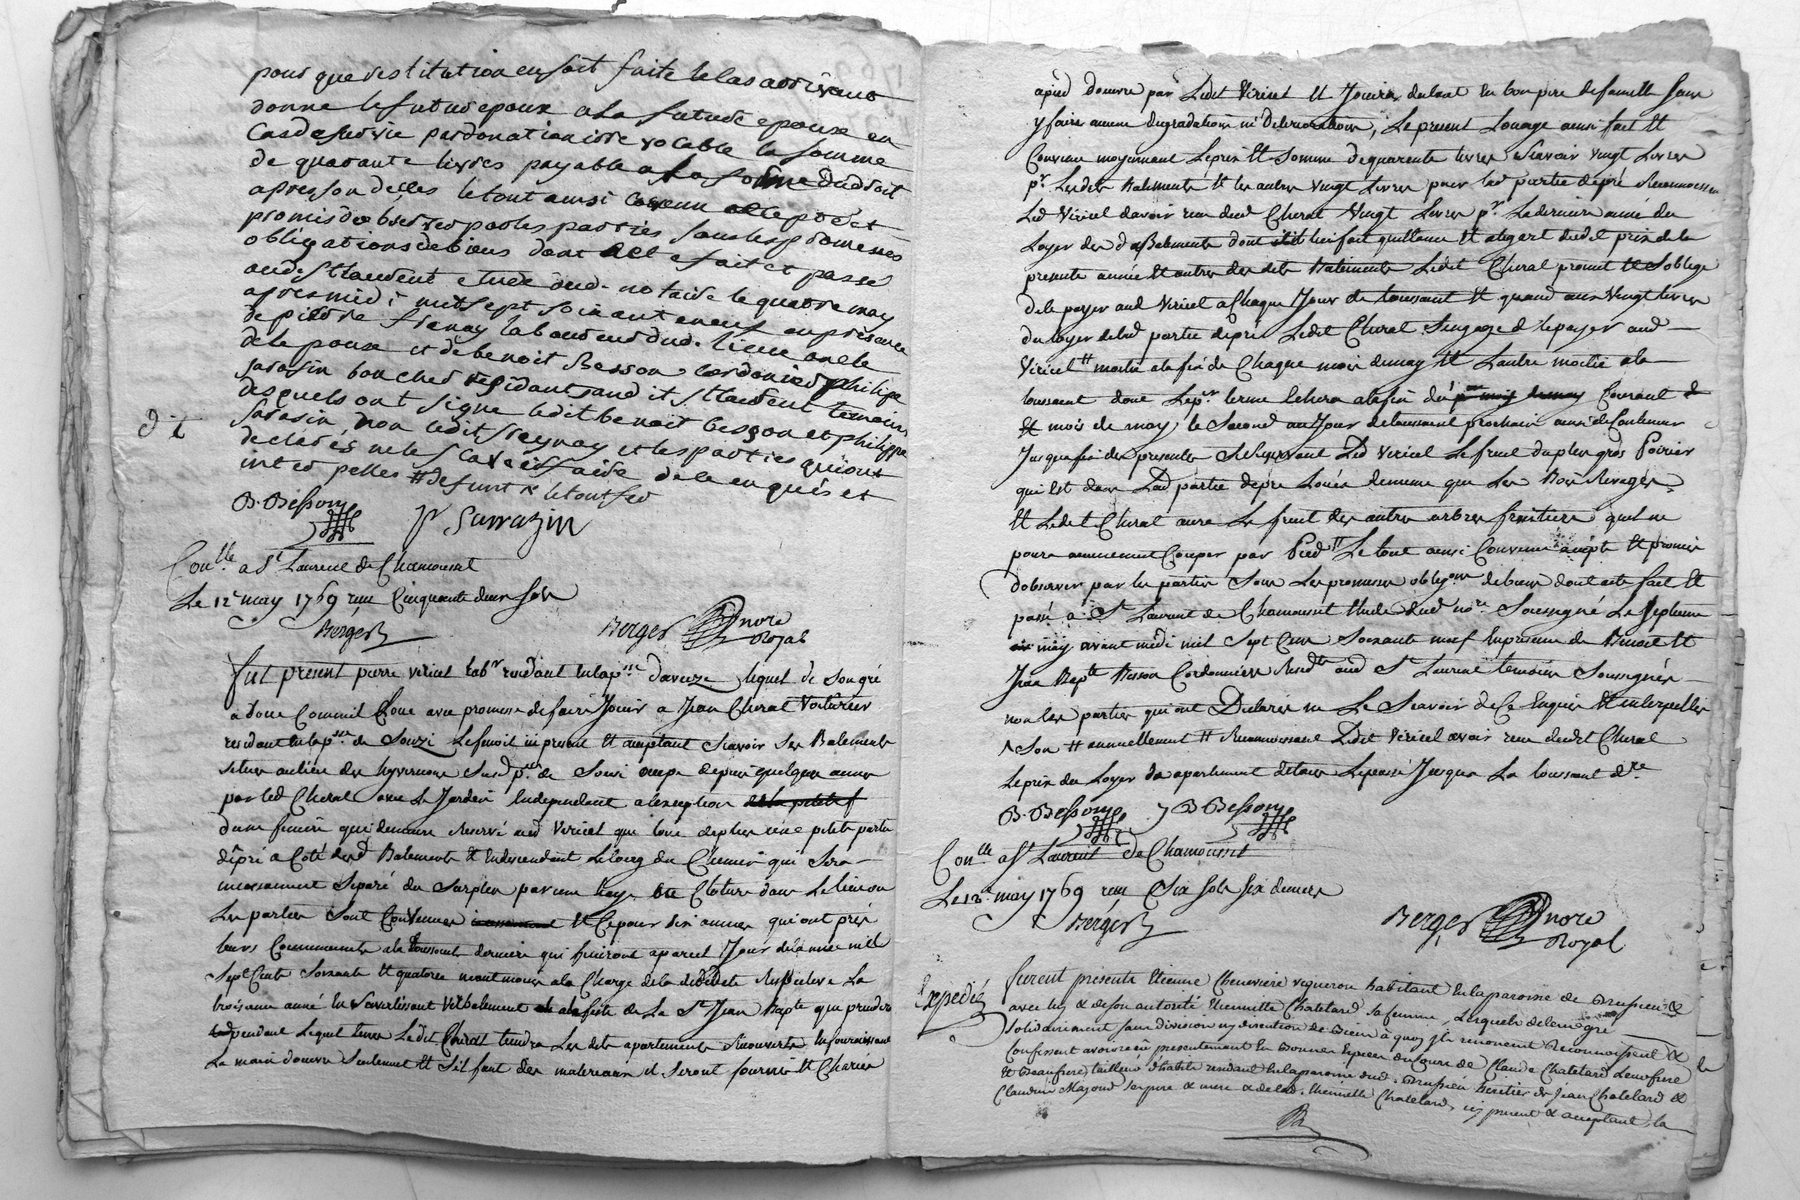 pour que restitution en soit faite le cas arrivant
donne le futur epoux a la future epouse en
Cas de survie par donation irrevocable la somme
de quarante livres payable a la forme du droit
apres son deces le tout ainsi convenu accepté et
promis d'observer par les parties sous les promesses
obligations de biens dont acte fait et passé
aud. St Laurent etude dud. notaire le quatre may
apres midi mil sept soixante neuf en presence
de pierre frenay laboureur dud. lieu oncle
de lepouse et de benoit Besson cordonier philippe
sarasin boucher residants aud it St laurent temoins
desquels ont signé ledit benoit besson et philippe
sarasin, non ledit freynay et les parties qui ont
declaré ne le scavoir faire de ce enquis et
interpellés # defunt * le tout sed
B. Besson
P Sarrazin
Con.lle a St Laurent de Chamousset
Le 12e may 1769 reçu Cinquante deux sols
Berger
Berger nore Royal
d. t
fut present pierre viricel labr residant en la pp.sse d'aveize lequel de son gré
a donc Commil Loue avec promesse de faire Jouir a Jean Cheral Voiturier
residant en la pp.sse de Souzi Le benoit ici present et acceptant Scavoir Ses Batements
situés au lieu des hyvernons Susd. p.sse de Souzi occupé depuis quelques annes
par led Cheral avec Le Jardin Independant a lexception
dune feniere qui demeure Reservé aud Viricel qui loue deplus une petite partie
de pré a Coté desd Batements et Independant Le long du Chemin qui Sera
incessamment Separé du Surplus par une haye Cloture dans Le lieu ou
Les parties Sont Convenues et Ce pour Six annes qui ont pris
leurs Commencements a la toussaint derniere qui finiront a pareil Jour de lannée mil
Sept Cents Soixante et quatorze
troisieme anné En Savertissant verbalement a la feste de La St Jean Bapte que prendra
pendant Lequel tems Ledit Cheral tiendra Les dits apartements Recouverts En fournissant
La main d'ouvre Seulement Et S'il faut des materiaux il Seront fournis et Chariés
apied d'ouvre par Ledit Viricel et Jouira du tout En bon pere de famille Sans
y faire aucune degradations ni deteriorations, Le present Louage ainsi fait et
Convenu moyennant Le prix et Somme de quarente livres Scavoir vingt Livres
pr. Lesdits Batements et les autres vingt Livres pour lad partie de pré Reconnoissant
Led Viricel davoir reçu dud Cheral Vingt Livres pr. La derniere anné du
Loyer desd. Batements dont il lui fait quittance et a legart dudit prix de la
presente année et autres des dits Batements Ledit Cheral promet et S'oblige
de le payer aud Viricel a Chaque Jour de toussaint et quand aux vingt livres
du loyer de lad partie de pré Ledit Cheral S'engage de le payer aud
Viricel # moitié a la fin de Chaque mois de may et Lautre moitié a la
toussaint dont Le p.er terme Echera a la fin du Courant
mois de may, le Second au Jour de toussaint prochain ainsi de Continuer
Jusqua fin des presentes Se Reservant Led Viricel Le fruit du plus gros Poirier
qui Est dans Lad partie de pré Louée de meme que Les Bois Revages
et Ledit Cheral aura Le fruit des autres arbres fruitiers quil ne
poura aucunement Couper par Pied # Le tout ainsi Convenu accepté et promis
d'observer par les parties Sous Les promesses obligons de biens dont acte fait et
passé a St Laurent de Chamousset Etude dud nore. Soussigné Le Septieme
may avant midi mil Sept Cens Soixante neuf En presence de Benoit et
Jean Bapte Besson Cordonniers Residts aud St Laurent temoins Soussignés
non les parties qui ont Declarées ne Le Scavoir de Ce Enquis et interpellés
# annuellement # Reconnoissant Ledit Viricel avoir reçu dudit Cheral
Le prix du Loyer d'apartement de tout Le passé Jusqua La toussaint d.re
B. Besson J B Besson
Con.lle a St Laurent de Chamousset
Le 12e may 1769 reçu Six sols six deniers
Berger
Berger nore Royal
Expedié
furent présents Etienne Cheneviere vigneron habitant En la paroisse de Brussieu &
avec luy & de son autorité Etiennette Chatelard sa femme, Lesquels de leur gré
solidairement sans division ny discution de Bien a quoy ils renoncent Reconnoissent &
Confessent avoir reçu presentement En Bonnes Especes du Cours de Claude Chatelard Leur frere
Et Beaufrere tailleur d'habits residant En la paroisse dud. Brussieu heritier de Jean Chatelard &
Claudine Mazoud ses pere & mere & de lad. Etiennette Chatelard, icy present & acceptant, la